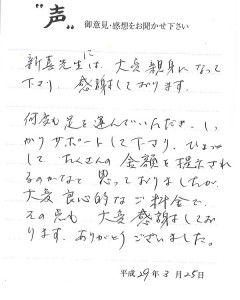 "声"
御意見・感想をお聞かせ下さい
新喜先生には、大変親身になって
下さり、感謝しております。
何度も足を運んでいただき、しっ
かりサポートして下さり、ひょっと
して たくさんの金額を提示され
るのかなと思っておりましたが、
大変良心的なご料金で、
その点も 大変感謝してお
ります。ありがとうございました。
平成29年3月25日